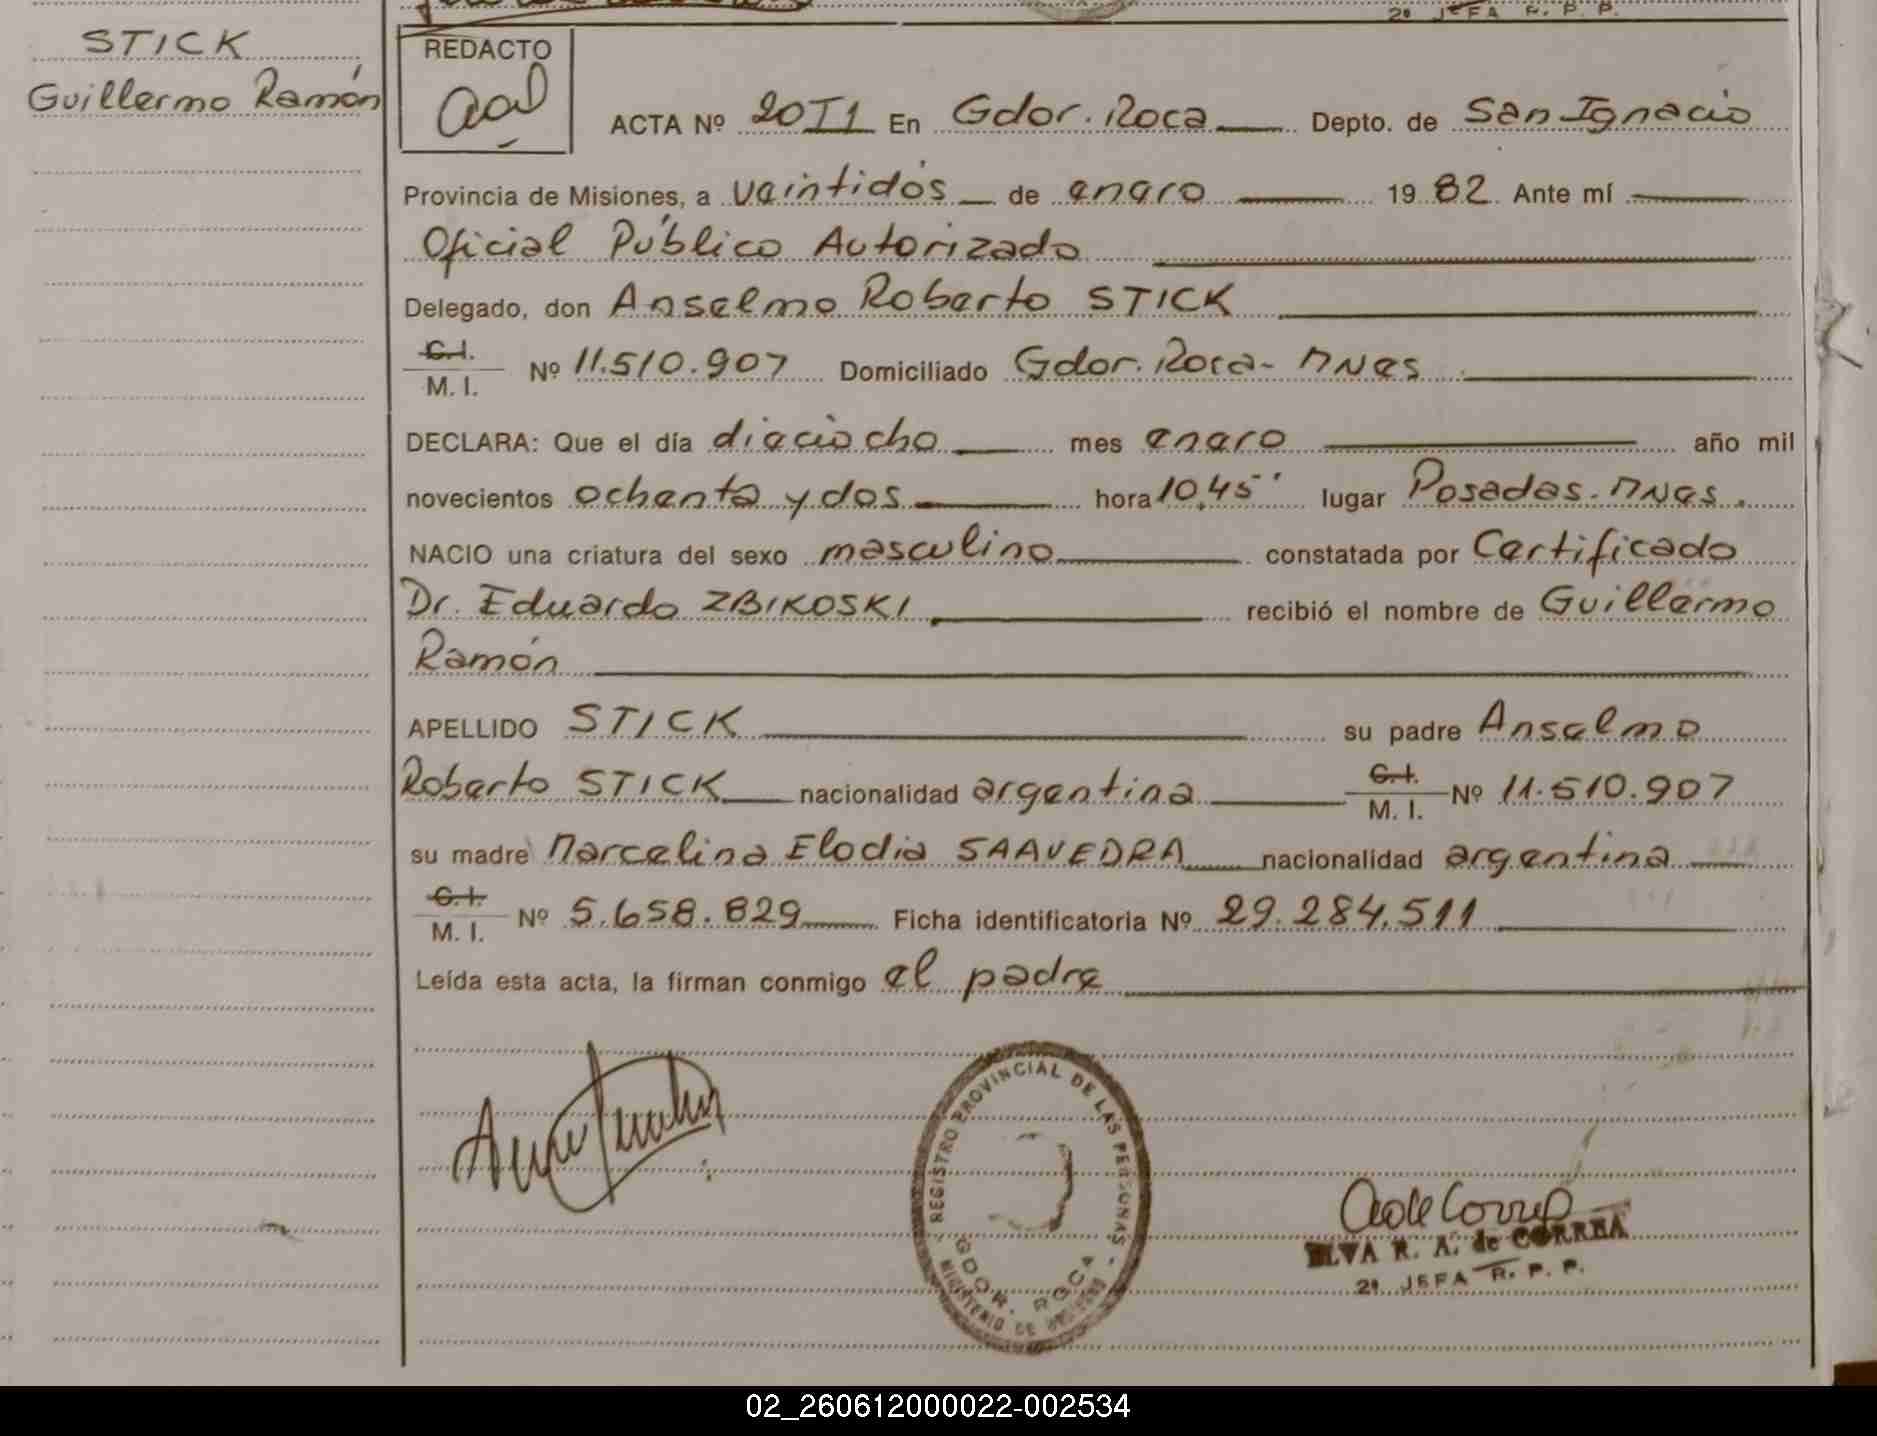 2º JEFA R. P. P.
STICK
Guillermo Ramón
REDACTO
ACTA Nº 20T1 En Gdor. Roca Depto. de San Ignacio
Provincia de Misiones, a veintidós de enero 19 82 Ante mí
Oficial Público Autorizado
Delegado, don Anselmo Roberto STICK
C.I.
M. I. Nº 11.510.907 Domiciliado Gdor. Roca - MNES
DECLARA: Que el día dieciocho mes enero año mil
novecientos ochenta y dos hora 10,45' lugar Posadas. MNES.
NACIO una criatura del sexo masculino constatada por Certificado
Dr. Eduardo ZBIKOSKI recibió el nombre de Guillermo
Ramón
APELLIDO STICK su padre Anselmo
Roberto STICK nacionalidad argentina C.I. M. I. Nº 11.510.907
su madre Marcelina Elodia SAAVEDRA nacionalidad argentina
C.I.
M. I. Nº 5.658.829 Ficha identificatoria Nº 29.284.511
Leída esta acta, la firman conmigo el padre
REGISTRO PROVINCIAL DE LAS PERSONAS
GDOR. ROCA
MINISTERIO DE GOBIERNO
A de Correa
ELVA R. A. de CORREA
2º JEFA R. P. P.
02_260612000022-002534